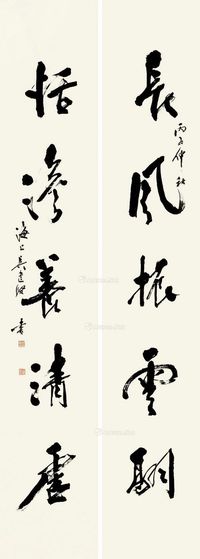 長風振雲
丙子仲秋
恬澹養清虛
海上吳建 書